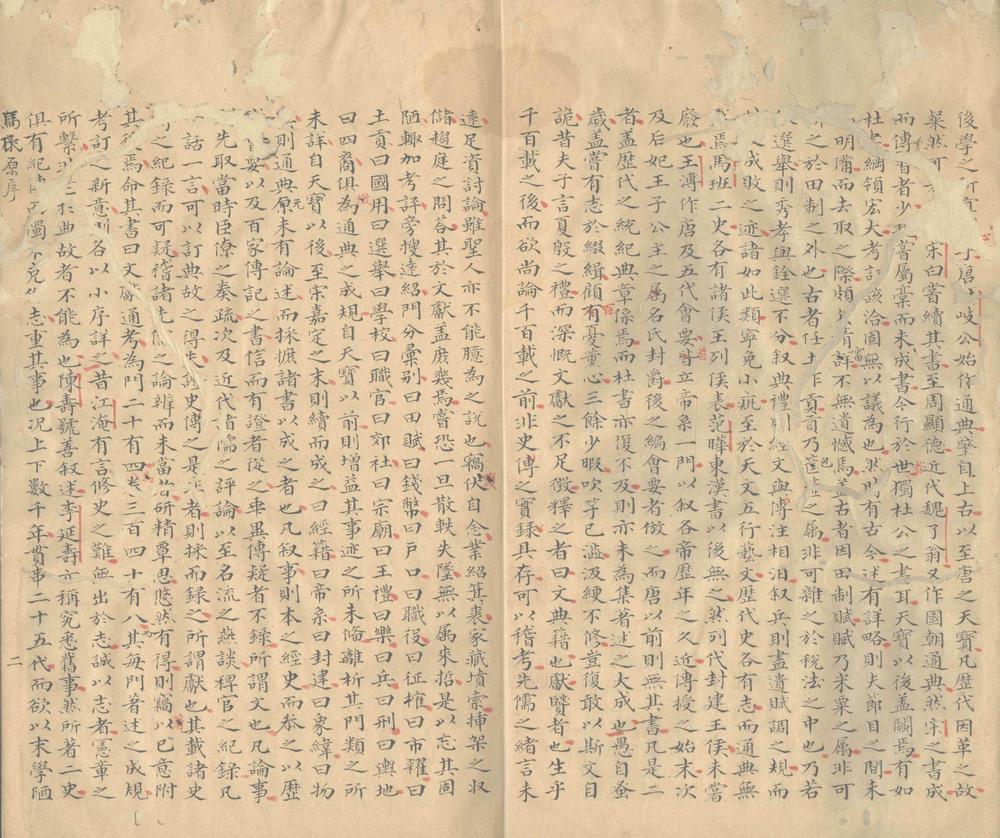 後學之 唐 岐公始作通典肇自上古以至唐之天寶凡歷代因革之故
粲然可 宋白嘗續其書至周顯德近代魏了翁又作國朝通典然宋之書成
而傳習者少 嘗屬稾而未成書今行於世獨杜公之書耳天寶以後蓋闕焉有如
杜書綱領宏大考訂該洽固無以議為也然時有古今述有詳略則夫節目之間未
明備而去取之際頗欠精詳不無遺憾焉蓋古者因田制賦賦乃米粟之属非可
之於田制之外也古者任土作貢貢乃篚之属非可雜之於稅法之中也乃若
選舉則秀孝與銓選不分叙典禮則經文與傳注相汨叙兵則盡遺賦調之規而
成敗之迹諸如此類寧免小疵至於天文五行藝文歷代史各有志而通典無
焉馬班二史各有諸侯王列侯表范曄東漢書以後無之然列代封建王侯未嘗
廢也王溥作唐及五代會要首立帝系一門以叙各帝歷年之久近傳授之始末次
及后妃王子公主之属名氏封爵後之編會要者倣之而唐以前則無其書凡是二
者盖歷代之統紀典章係焉而杜書亦復不及則亦未為集著述之大成也愚自蚤
歲盖嘗有志於綴緝顧有憂薰心三餘少暇吹竽已濫汲綆不修豈復敢以斯文自
詭昔夫子言夏殷之禮而深慨文獻之不足徵釋之者曰文典籍也獻賢者也生乎
千百載之後而欲尚論千百載之前非史傳之實錄具存可以稽考先儒之緒言未
遠足資討論雖聖人亦不能臆為之說也竊伏自念業紹箕裘家藏墳索挿架之收
儲趨庭之問荅其於文獻盖庶幾焉嘗恐一旦散軼失墜無以属來哲是以忘其固
陋輙加考評旁搜遠紹門分彙别曰田賦曰錢幣曰戶口曰職役曰征榷曰市糴曰
土貢曰國用曰選舉曰學校曰職官曰郊社曰宗廟曰王禮曰樂曰兵曰刑曰輿地
曰四裔俱為通典之成規自天寶以前則增益其事迹之所未俻離析其門類之所
未詳自天寶以後至宋嘉定之末則續而成之曰經籍曰帝系曰封建曰象緯曰物
則通典原未有論述而採摭諸書以成之者也凡叙事則本之經史而叅之以歷
會要以及百家傳記之書信而有證者從之乖異傳疑者不錄所謂文也凡論事
先取當時臣僚之奏疏次及近代諸儒之評論以至名流之燕談稗官之紀錄凡
話一言可以訂典故之得失證史傳之是非者則採而錄之所謂獻也其載諸史
之紀錄而可疑稽諸先儒之論辨而未當者研精覃思悠然有得則竊以已意附
其後焉命其書曰文獻通考為門二十有四卷三百四十有八其每門著述之成規
考訂之新意則各以小序詳之昔江淹有言修史之難無出於志誠以志者憲章之
所繫非老於典故者不能為也陳壽號善叙述李延壽亦稱究悉舊事然所著二史
俱有紀 而獨不克作志重其事也况上下数千年貫串二十五代而欲以末學陋
馬 原序
二